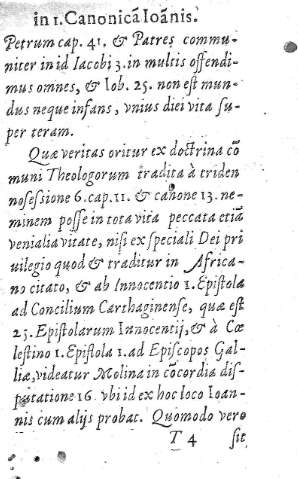 in 1. Canonicā Ioānis.
Petrum cap. 41. & Patres commu-
niter in id Iacobi 3. in multis offendi-
mus omnes, & Iob. 25. non est mun-
dus neque infans, vnius diei vita su-
per teram.
Quæ veritas oritur ex doctrina cō
muni Theologorum tradita à triden
no sessione 6. cap. 11. & canone 13. ne-
minem posse in tota vita peccata etiā
venialia vitate, nisi ex speciali Dei pri
uilegio quod & traditur in Africa-
no citato, & ab Innocentio 1. Epistola
ad Concilium Carthaginense, quæ est
25. Epistolarum Innocentij, & à Cœ
lestino 1. Epistola 1. ad Episcopos Gal-
liæ, videatur Molina in cōcordia dis-
putatione 16. vbi id ex hoc loco Ioan-
nis cum alijs probat. Quomodo vero
T 4 sit